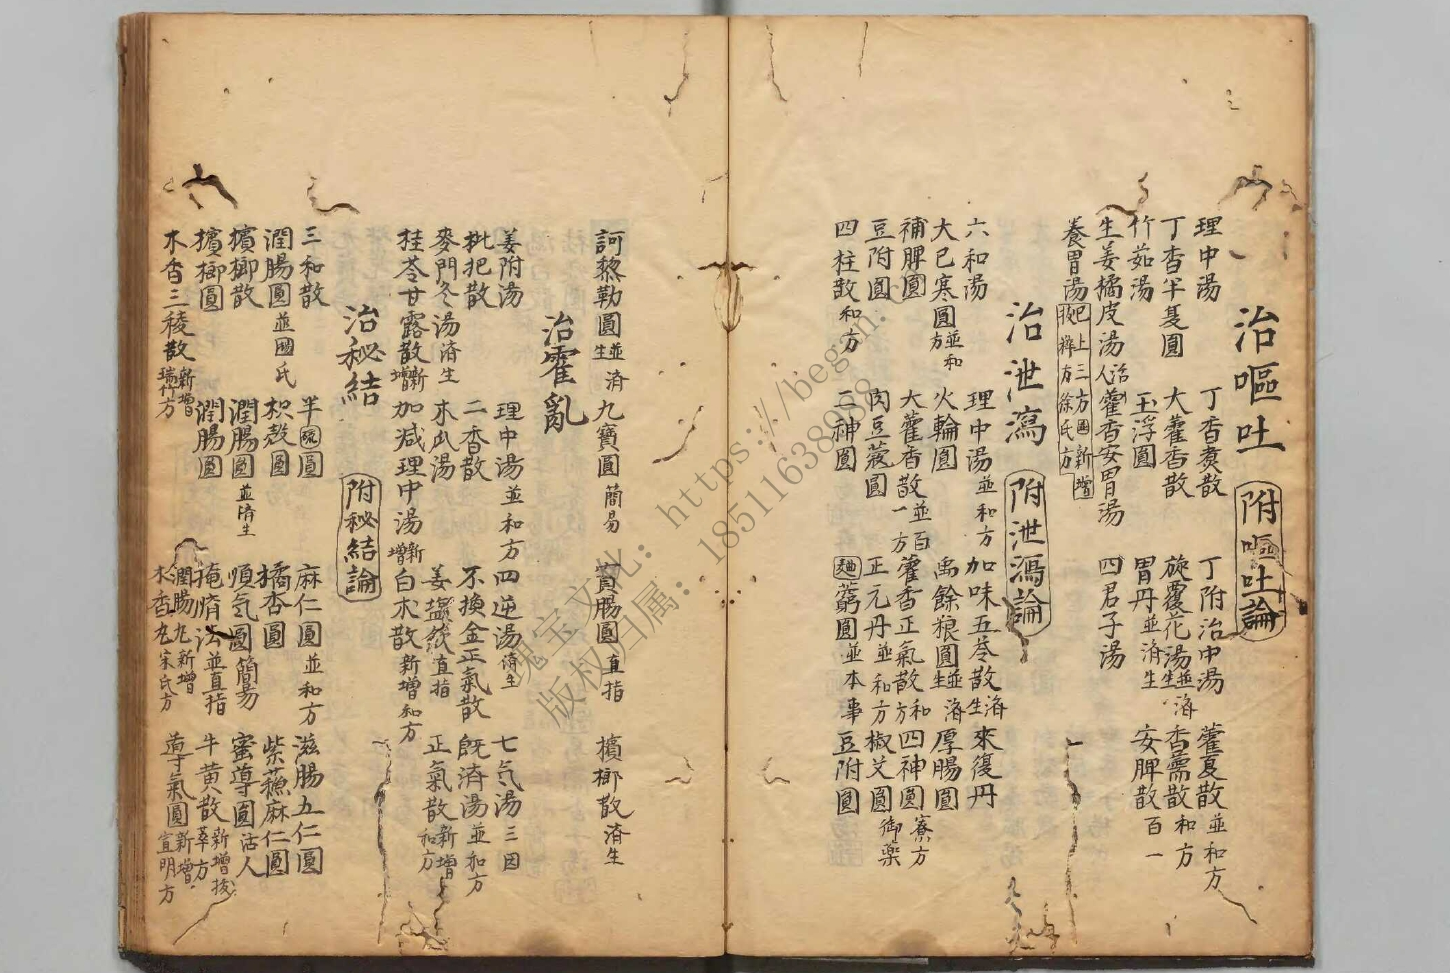 治嘔吐 附嘔吐論
理中湯 丁香煮散 丁附治中湯 藿香散並和方
丁香半夏圓 大藿香散 旋覆花湯並濟生 香薷散和方
竹茹湯 玉浮圓 胃丹並済生 安脾散百一
生姜橘皮湯活人 藿香安胃湯 四君子湯
養胃湯已上三方國新增 徐氏方
治泄瀉 附泄瀉論
六和湯 理中湯並和方 加味五苓散濟生 來復丹
大已寒圓並和方 火輪圓 禹餘粮圓並濟生 厚腸圓
補脾圓 大藿香散並百一方 藿香正氣散和方 四神圓
豆附圓 肉豆蔻圓 正元丹並和方 椒艾圓御藥
四柱散和方 三神圓 麯藭圓並本事 豆附圓
訶黎勒圓並済生 九寶圓簡易 實腸圓直指 檳榔散済生
治霍亂
姜附湯 理中湯並和方 四逆湯済生 七气湯三因
枇把散 二香散 不換金正氣散 既済湯並和方
麥門冬湯済生 木瓜湯 姜塩飲直指 正氣散新增和方
桂苓甘露散新增 加减理中湯新增 白朮散新增和方
治秘結 附秘結論
三和散 半硫圓 麻仁圓並和方 滋腸五仁圓
潤腸圓並國氏 枳殼圓 橘杏圓 紫蘓麻仁圓
檳榔散 潤腸圓並済生 順气圓簡易 蜜導圓活人
檳榔圓 潤腸圓 掩臍法並直指 牛黄散新增拔萃方
木香三稜散新增瑞竹方 潤腸丸新增 導氣圓新增宣明方
木香丸宋氏方